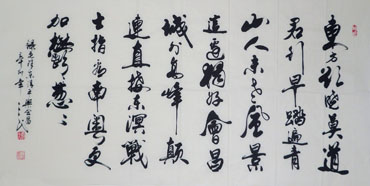 東方欲曉莫道
君行早踏遍青
山人未老風景
這邊獨好會昌
城外高峰顛
連直接東溟戰
士指看南粤更
加鬱〻葱〻
録毛澤東清平樂會昌